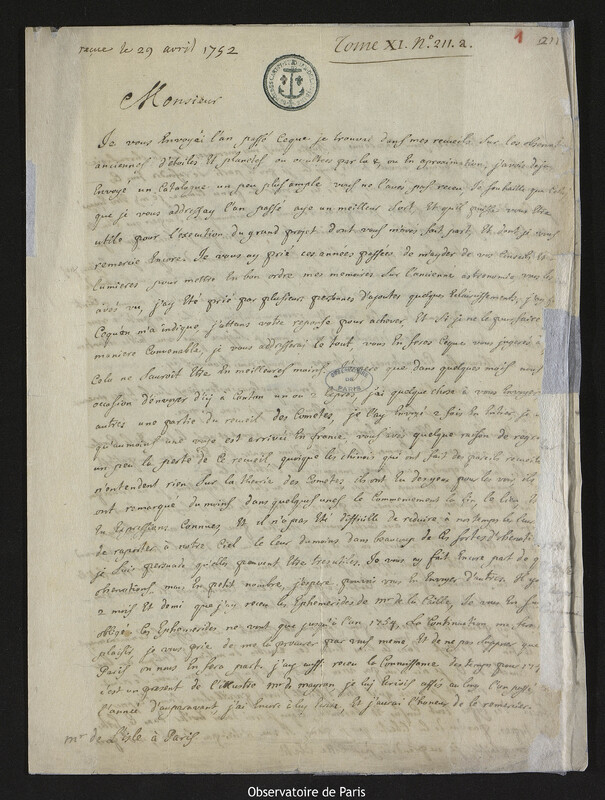 reçue le 29 avril 1752
Tome XI. N.º 211. a.
1
211
Monsieur
Je vous Envoyai l'an passé Ceque je trouvai dans mes recueils Sur les
anciennes d'étoiles Et planetes ou occultées par la ☾ ou En aproximation; j'avois deja
Envoyé un Catalogue un peu plus ample vous ne l'aves pas receu Je souhaitte que Celui
que je vous addressay l'an passé aye un meilleur sort Et qu'il puisse vous Etre
utile pour l'execution du grand projet dont vous m'aves fait part, Et dont je vous
remercie Encore. Je vous ay prié ces années passées de m'ayder de vos Conseils Et
lumieres pour mettre En bon ordre mes memoires Sur l'ancienne astronomie, vous les
aves vu, j'ay Eté prié par plusieurs personnes d'ajouter quelques Eclaircissements,
Cequ'on m'a indiqué j'attens votre reponse pour achever Et Si je ne le puis faire
maniere Convenable, je vous addresserai le tout vous En feres Ceque vous jugeres à
Cela ne Sauroit Etre En meilleures mains. J'espere que dans quelques mois nous
occasion d'envoyer d'icy à Canton un ou 2 Exprés, j'ai quelque chose à vous Envoyer
autres une partie du recueil des Cometes, je l'ay Envoyé 2 fois En Entier, je
qu'aumoins une voye est arrivée En france, vous aves quelque raison de
un peu la perte de Ce recueil, quoique les chinois qui ont fait de pareils recueils
n'entendent rien Sur la theorie des Cometes, ils ont Eu des yeux pour les voir ils
ont remarqué dumoins dans quelques unes le Commencement la fin le lieu Et
En Expressions Connues, Et il n'a pas Eté difficile de reduire à nos temps les leurs
de raporter à notre Ciel le leur dumoins dans beaucoup de Ces sortes d'observations
je Suis persuadé qu'elles peuvent Etre tres utiles. Je vous ay fait Encore part de
observations mais En petit nombre, j'espere pouvoir vous En Envoyer d'autres. Il y a
2 mois Et demi que j'ai receu les Ephemerides de mr de la Caille, Je vous En Suis
obligé les Ephemerides ne vont que jusqu'à l'an 1754. La Continuation me fera
plaisir, je vous prie de me la procurer par vous même Et de ne pas supposer que
Paris on nous En fera part. j'ay aussi receu la Connoissance des temps pour 17
c'est un present de l'Illustre mr de mayran je lui Ecrivis assés au long l'an passé
l'année d'auparavant, j'ai Encore à lui Ecrire, Et j'aurai l'honneur de le remercier.
mr de L'isle à Paris
OBSERVATOIRE DE PARIS
Observatoire de Paris